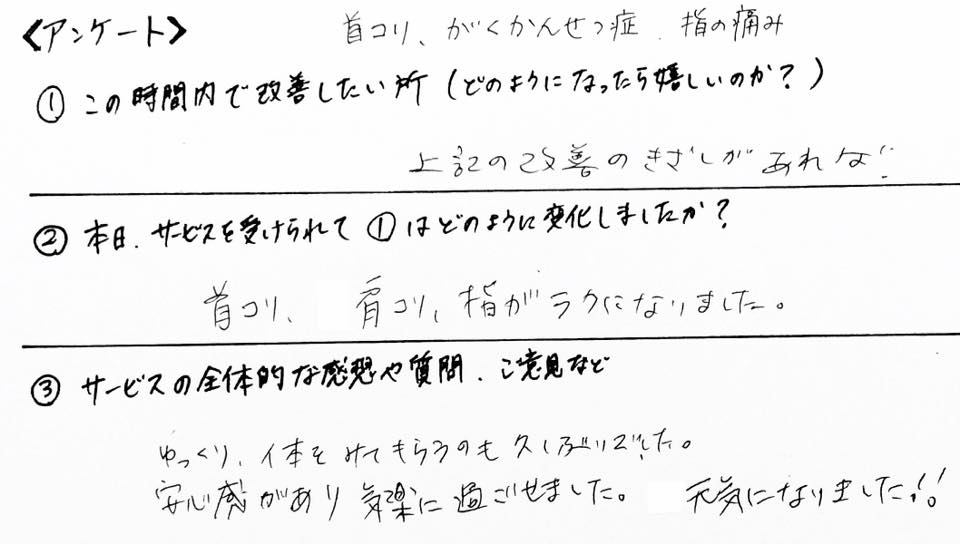 〈アンケート〉 首コリ、がくかんせつ症、指の痛み
① この時間内で改善したい所(どのようになったら嬉しいのか?)
上記の改善のきざしがあれば!
② 本日、サービスを受けられて①はどのように変化しましたか?
首コリ、 肩コリ、指がラクになりました。
③ サービスの全体的な感想や質問、ご意見など
ゆっくり、体をみてもらうのも久しぶりでした。
安心感があり気楽に過ごせました。 元気になりました!!